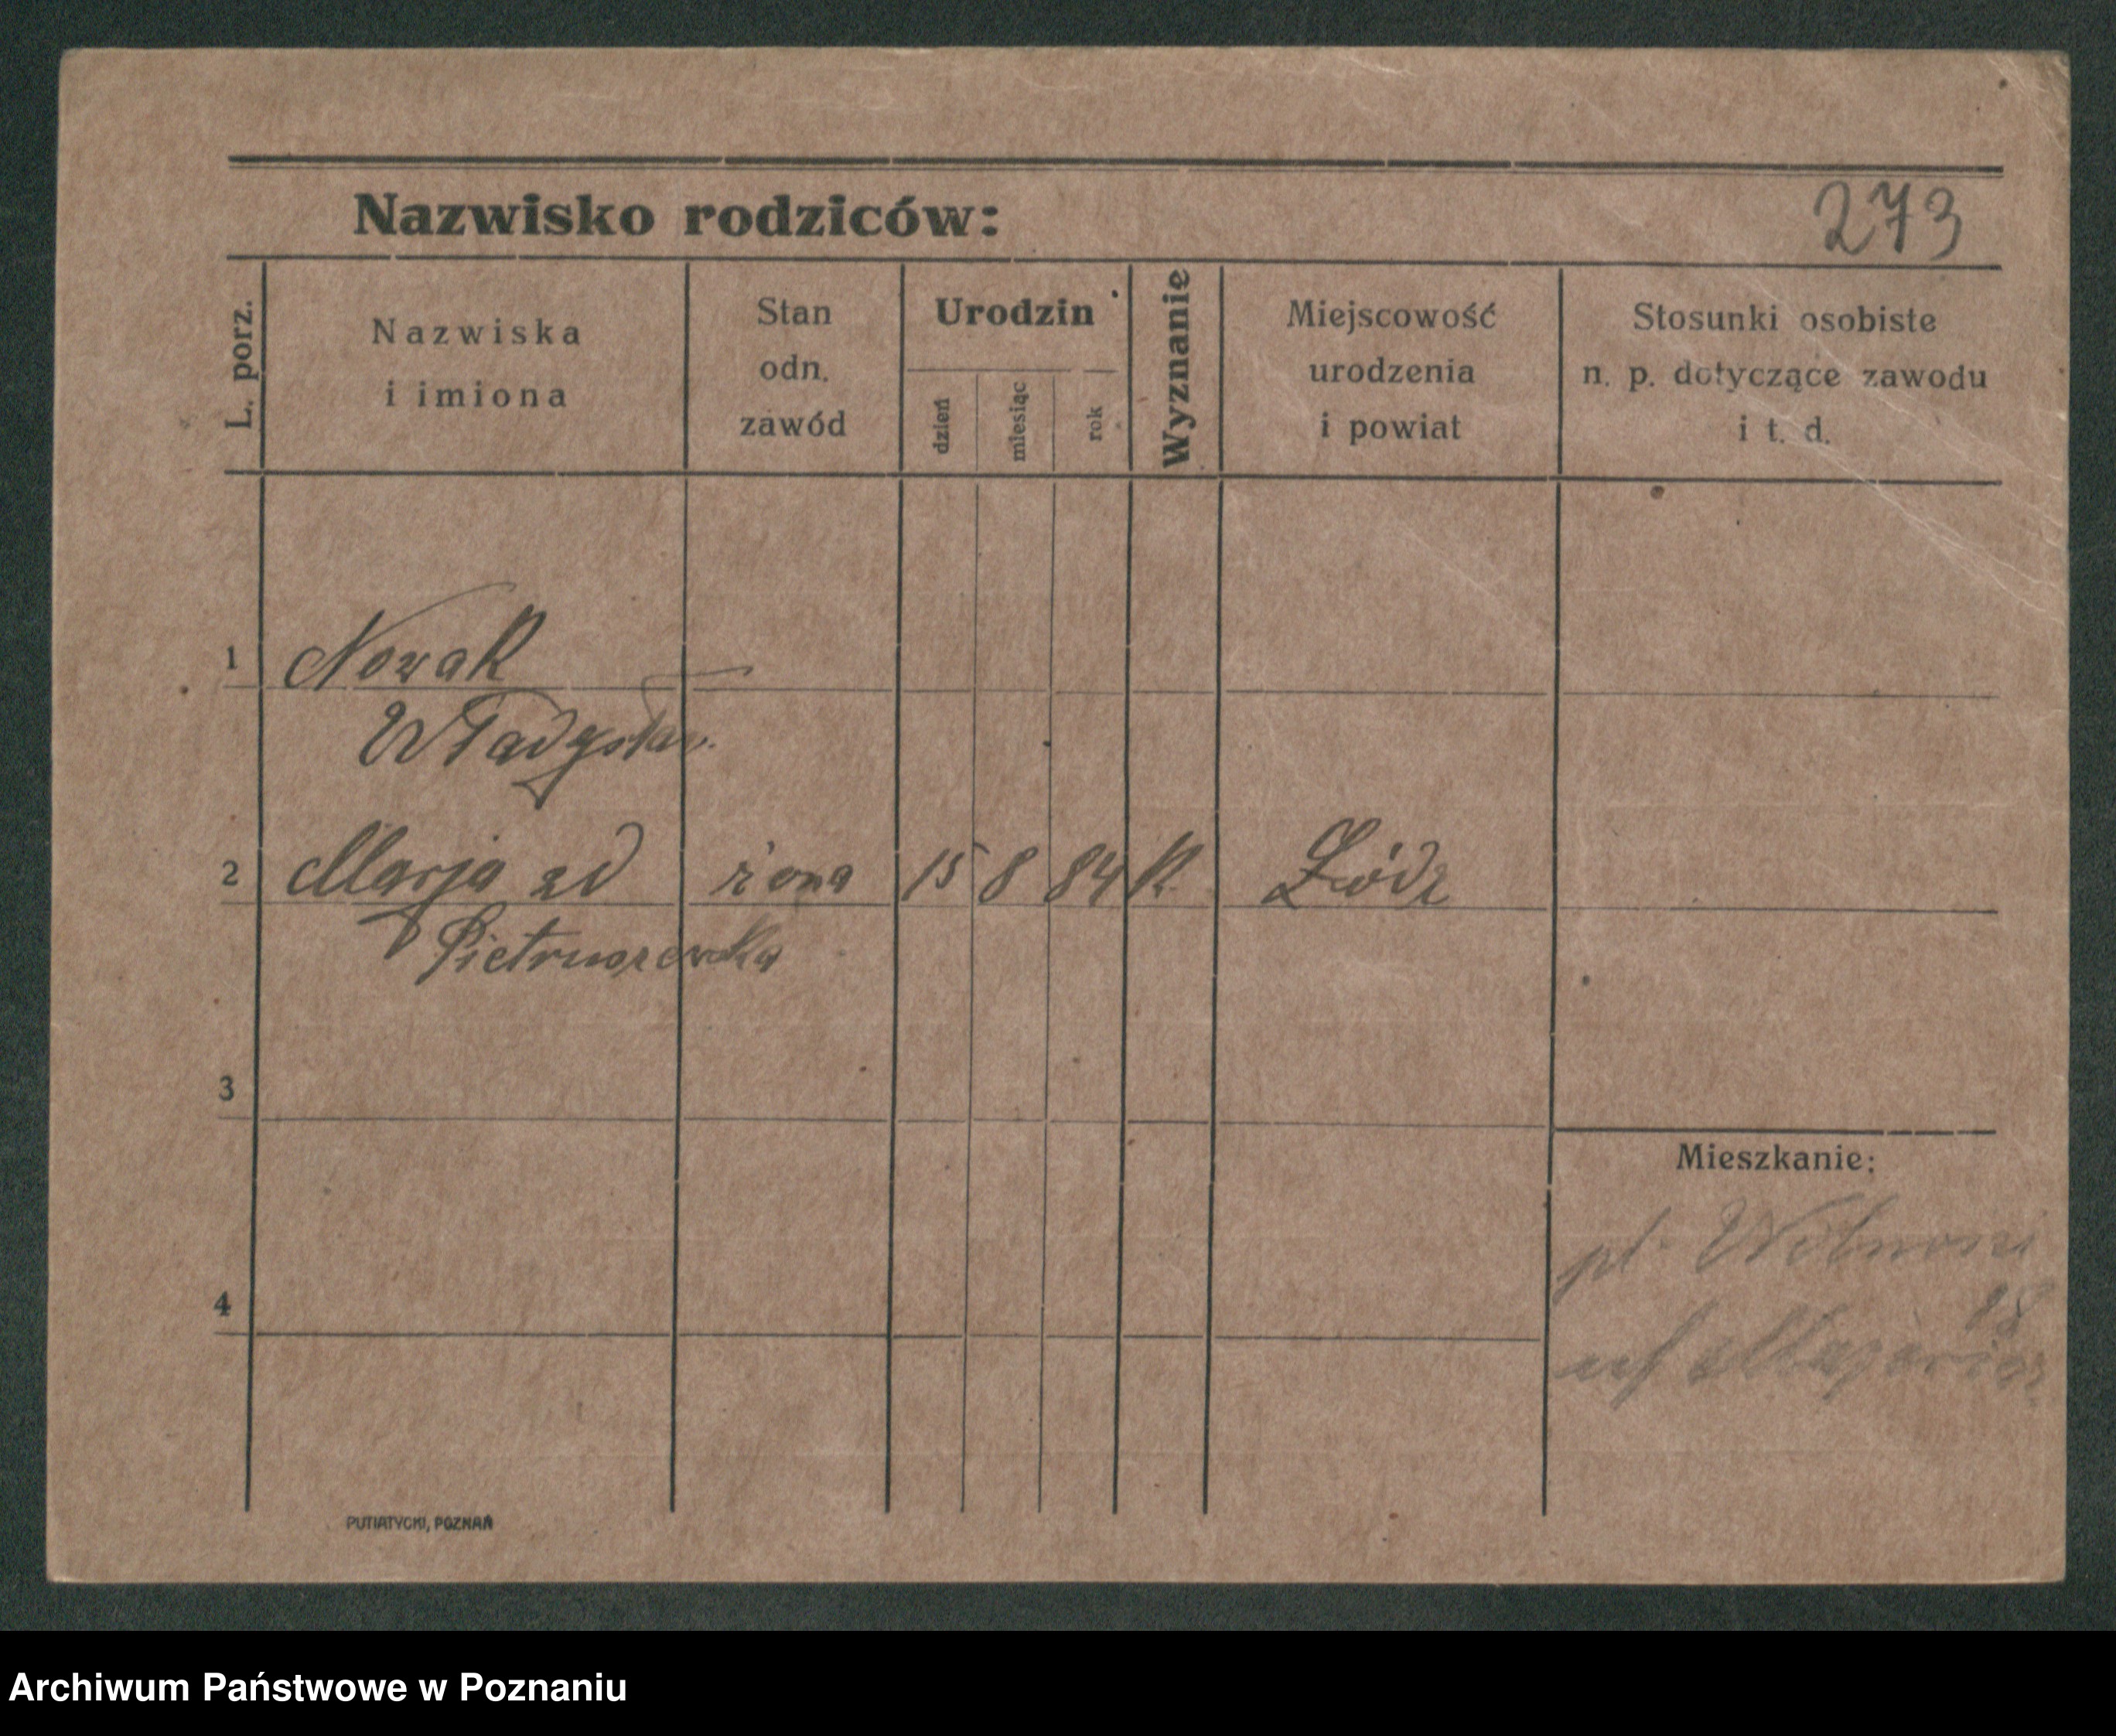 Nazwisko rodziców:
273
L. porz.
Nazwiska
i imiona
Stan
odn.
zawód
Urodzin
dzień
miesiąc
rok
Wyznanie
Miejscowość
urodzenia
i powiat
Stosunki osobiste
n. p. dotyczące zawodu
i t. d.
1 Nowak
Władysław
2 Marja zd żona 15 8 84 K. Łódz
Pietruszewska
3
Mieszkanie:
pl.
4
18
PUTIATYCKI, POZNAŃ
Archiwum Państwowe w Poznaniu